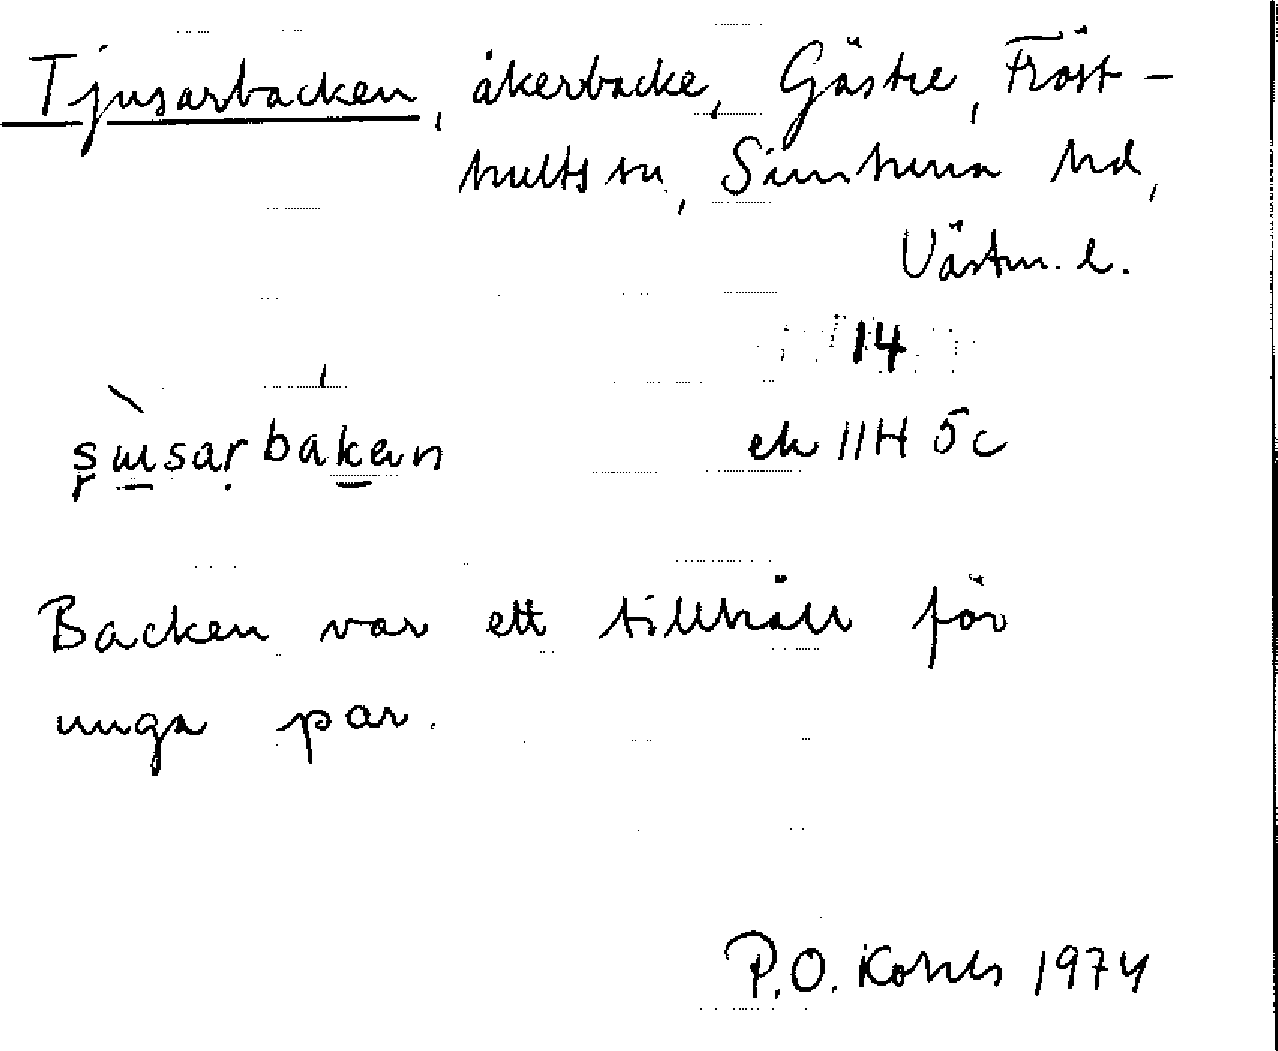 Tjusarbacken, åkerbacke, Gästre, Fröst-
hults sn, Simtuna hd,
Västm. l.
14
ek 11H 5c
Backen var ett tillhåll för
unga par.
P.O. 1974